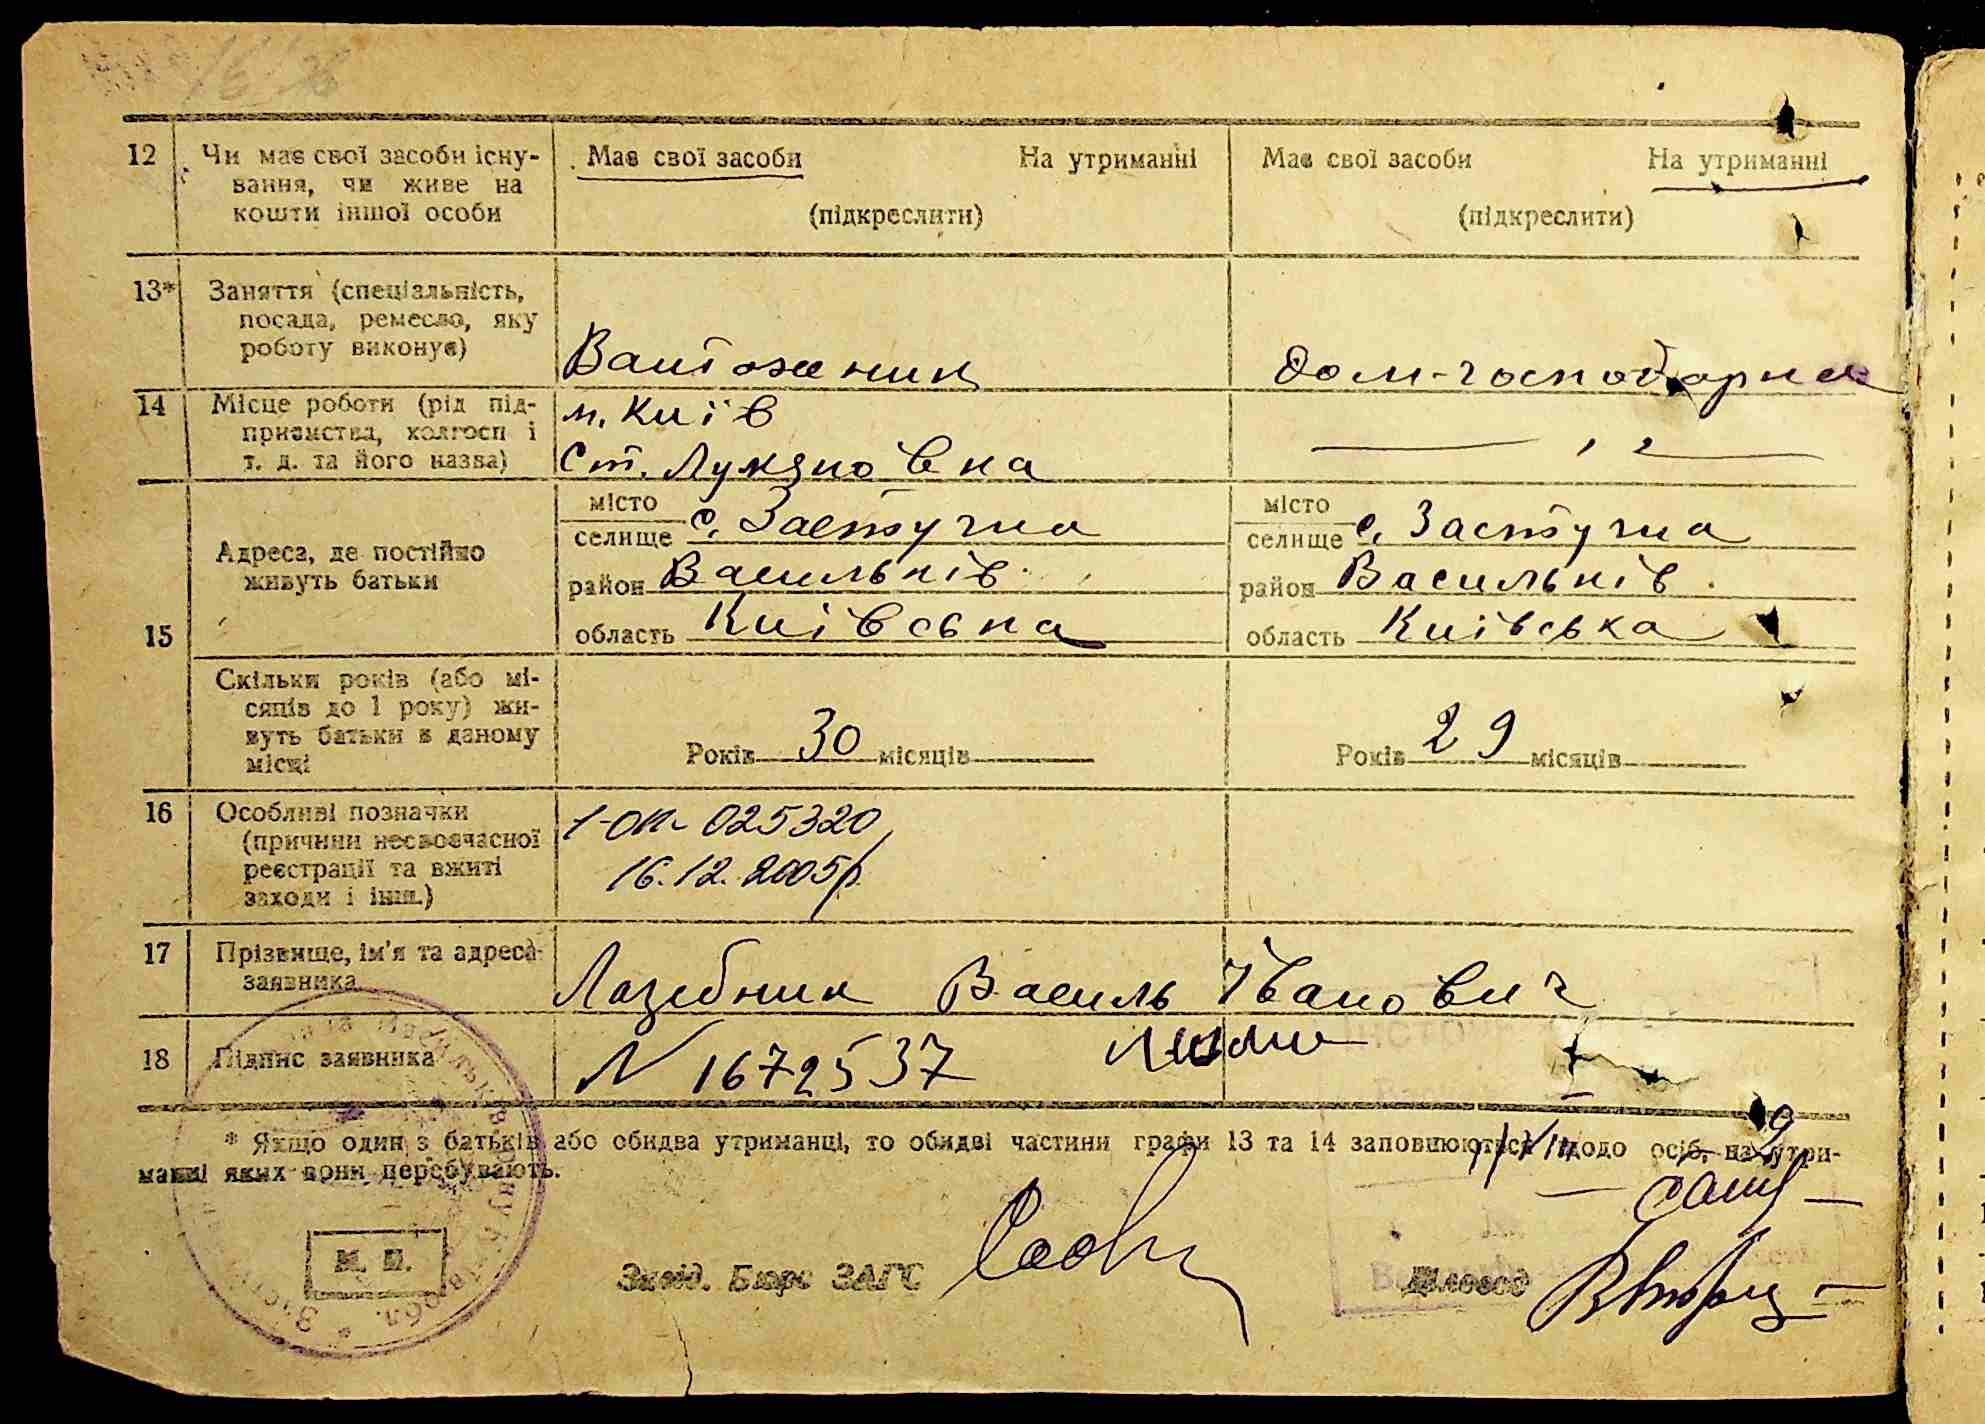 12 Чи має свої засоби існу-
вання, чи живе на
кошти іншої особи
Має свої засоби На утриманні
(підкреслити)
Має свої засоби На утриманні
(підкреслити)
13* Заняття (спеціальність,
посада, ремесло, яку
роботу виконує)
Вантажник
дом-господарка
14 Місце роботи (рід під-
приємства, колгосп і
т. д. та його назва)
м. Київ
Ст. Лукяновка
15 Адреса, де постійно
живуть батьки
місто
селище с. Застугна
район Васильків
область Київська
місто
селище с. Застугна
район Васильків
область Київська
Скільки років (або мі-
сяців до 1 року) жи-
вуть батьки в даному
місці
Років 30 місяців
Років 29 місяців
16 Особливі позначки
(причини несвоєчасної
реєстрації та вжиті
заходи і інш.)
025320
16.12.2005р.
17 Прізвище, ім'я та адреса
заявника
Лазебник Василь Іванович
18 Підпис заявника
N 1672537
* Якщо один з батьків або обидва утриманці, то обидві частини графи 13 та 14 заповнюються щодо осіб, на утри-
манні яких вони перебувають.
М. П.
Завід. Бюро ЗАГС
Діловод